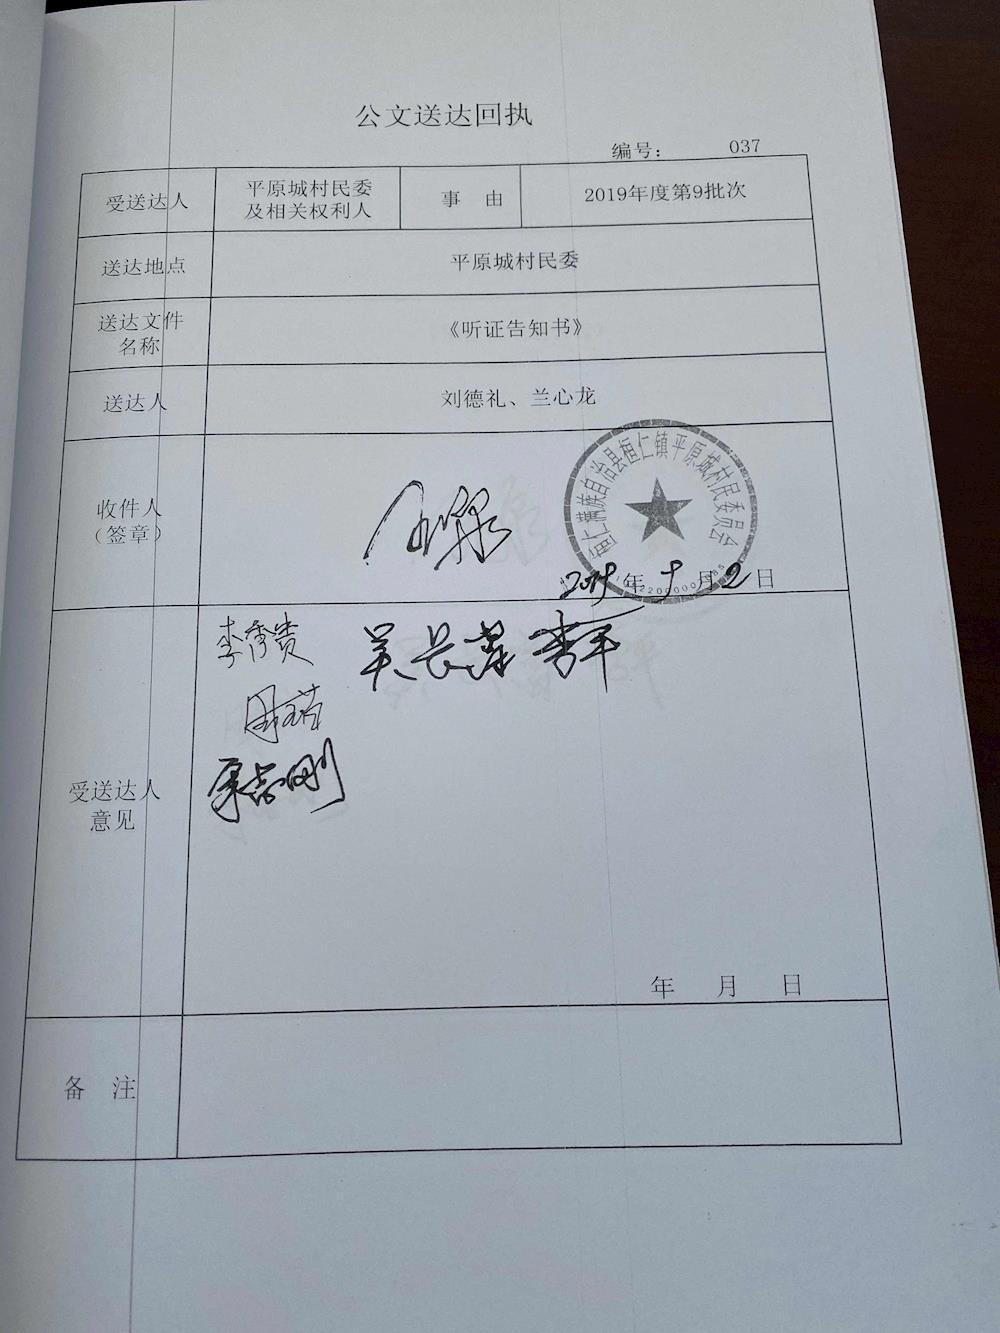 公文送达回执
编号： 037
受送达人
平原城村民委
及相关权利人
事 由
2019年度第9批次
送达地点
平原城村民委
送达文件
名称
《听证告知书》
送达人
刘德礼、兰心龙
收件人
（签章）
桓仁满族自治县桓仁镇平原城村民委员会
2019年9月2日
李秀贵
李平
受送达人
意见
年 月 日
备 注